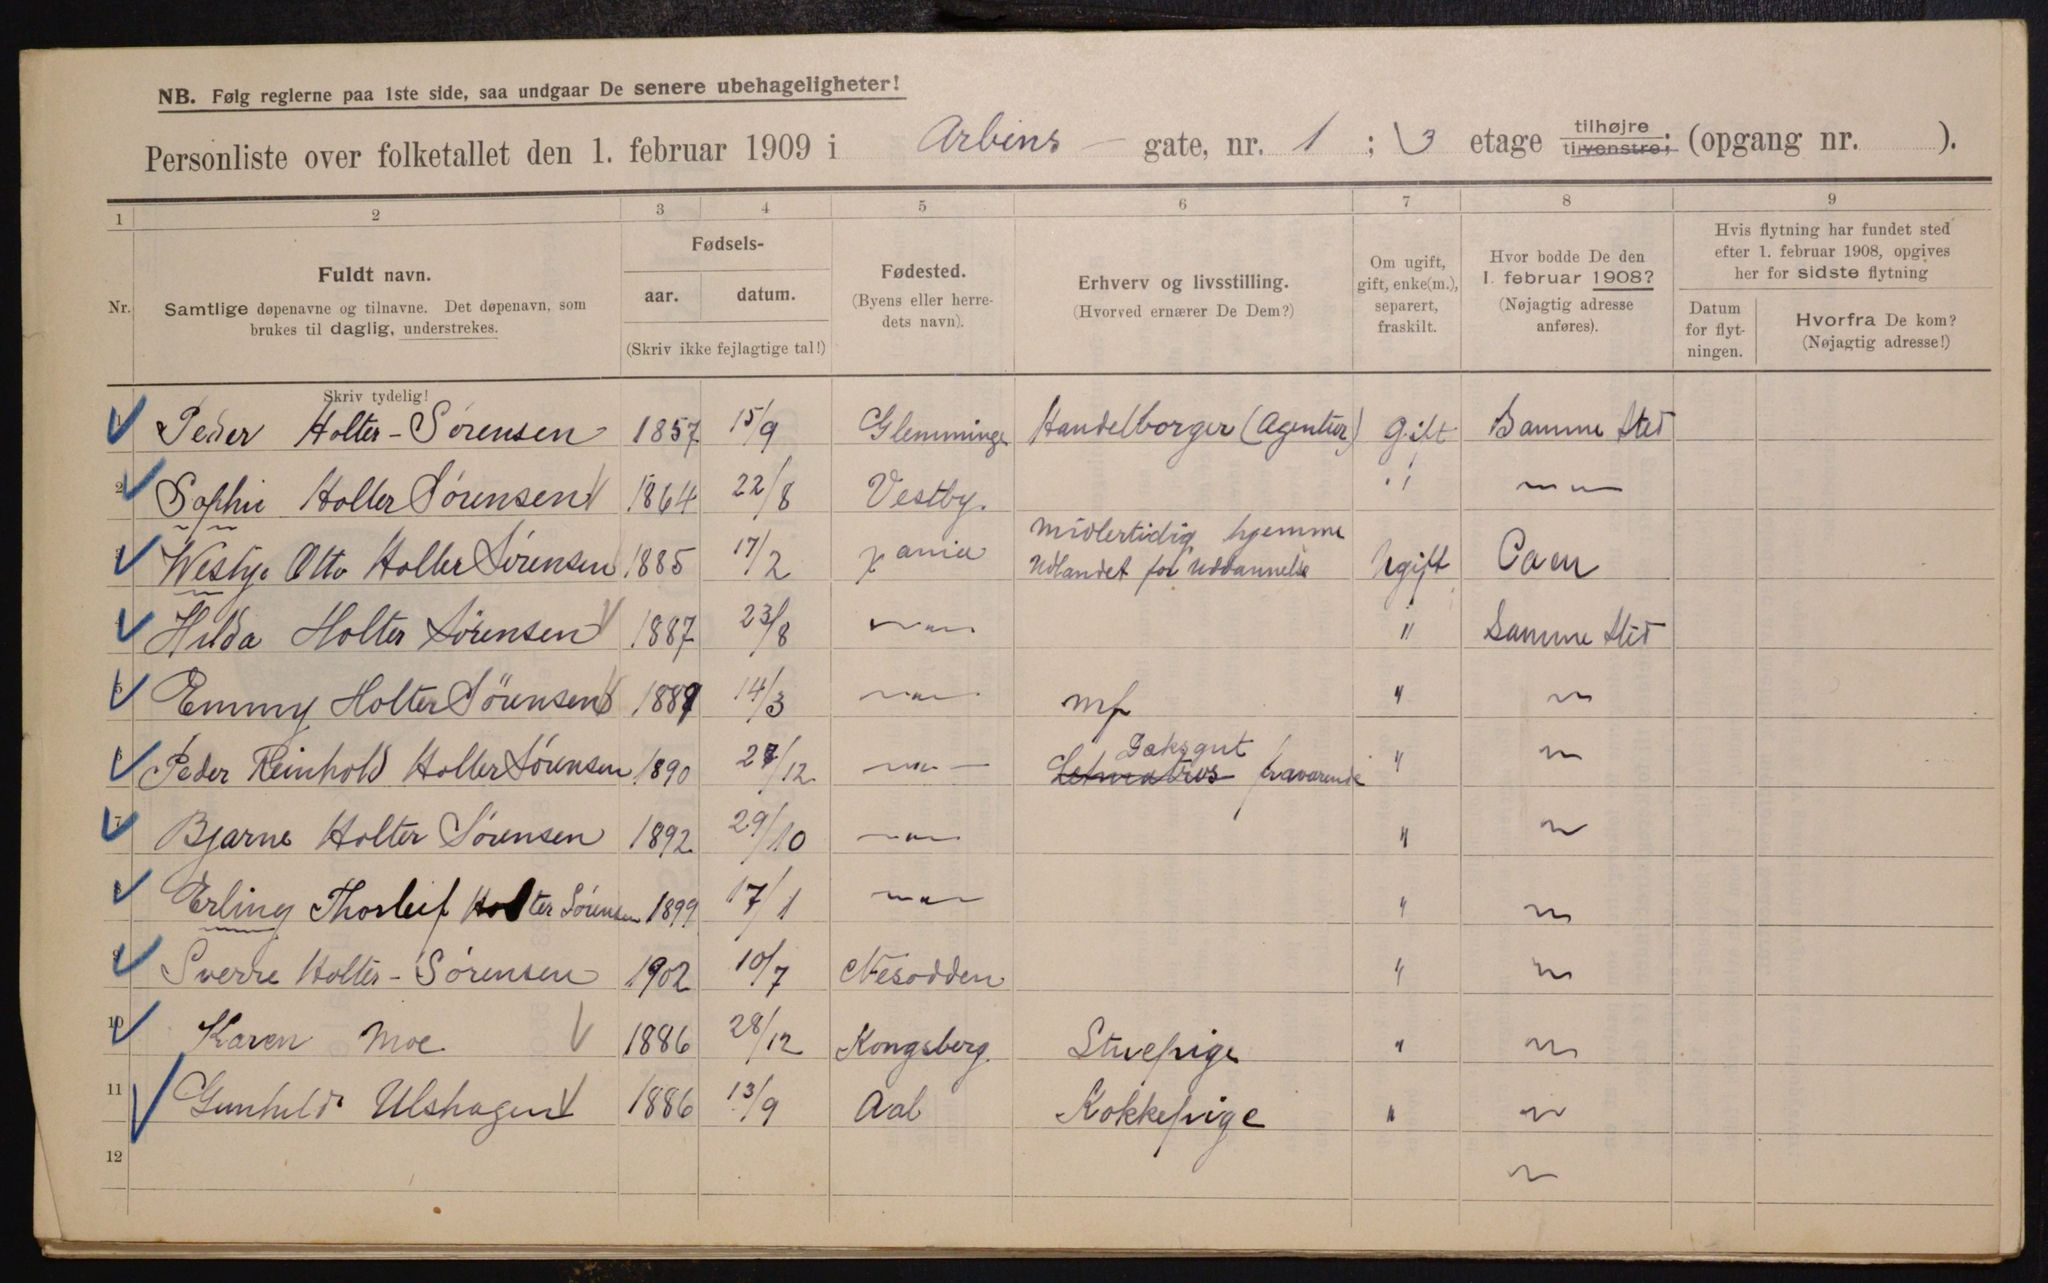 NB. Følg reglerne paa 1ste side, saa undgaar De senere ubehageligheter!
Personliste over folketallet den 1. februar 1909 i Arbins gate, nr. 1 ; 3 etage tilhøjre tilvenstre; (opgang nr. ).
1 2 3 4 5 6 7 8 9
Nr.
Fuldt navn.
Samtlige døpenavne og tilnavne. Det døpenavn, som
brukes til daglig, understrekes.
Skriv tydelig!
Fødsels-
aar. datum.
(Skriv ikke fejlagtige tal!)
Fødested.
(Byens eller herre-
dets navn).
Erhverv og livsstilling.
(Hvorved ernærer De Dem?)
Om ugift,
gift, enke(m.),
separert,
fraskilt.
Hvor bodde De den
1. februar 1908?
(Nøjagtig adresse
anføres).
Hvis flytning har fundet sted
efter 1. februar 1908, opgives
her for sidste flytning
Datum
for flyt-
ningen.
Hvorfra De kom?
(Nøjagtig adresse!)
1 Peder Holter-Sørensen 1857 15/9 Glemminge Handelborger (Agentur) Gift Samme Sted
2 Sophie Holter Sørensen 1864 22/8 Vestby. " —"—
3 Westye Otto Holter Sørensen 1885 17/2 Xania Midlertidig hjemme
Udlandet for uddannelse Ugift Caen
4 Hilda Holter Sørensen 1887 23/8 —"— " Samme Sted
5 Emmy Holter Sørensen 1889 14/3 —"— " "
6 Peder Reinhold Holter Sørensen 1890 27/12 —"— fraværende " "
7 Bjarne Holter Sørensen 1892 29/10 —"— " "
8 Erling Thorleif Holter Sørensen 1899 17/1 —"— " "
9 Sverre Holter-Sørensen 1902 10/7 Nesodden " "
10 Karen Moe 1886 28/12 Kongsberg Stuepige " "
11 Gunhild Ulshagen 1886 13/9 Aal Kokkepige " "
12 "